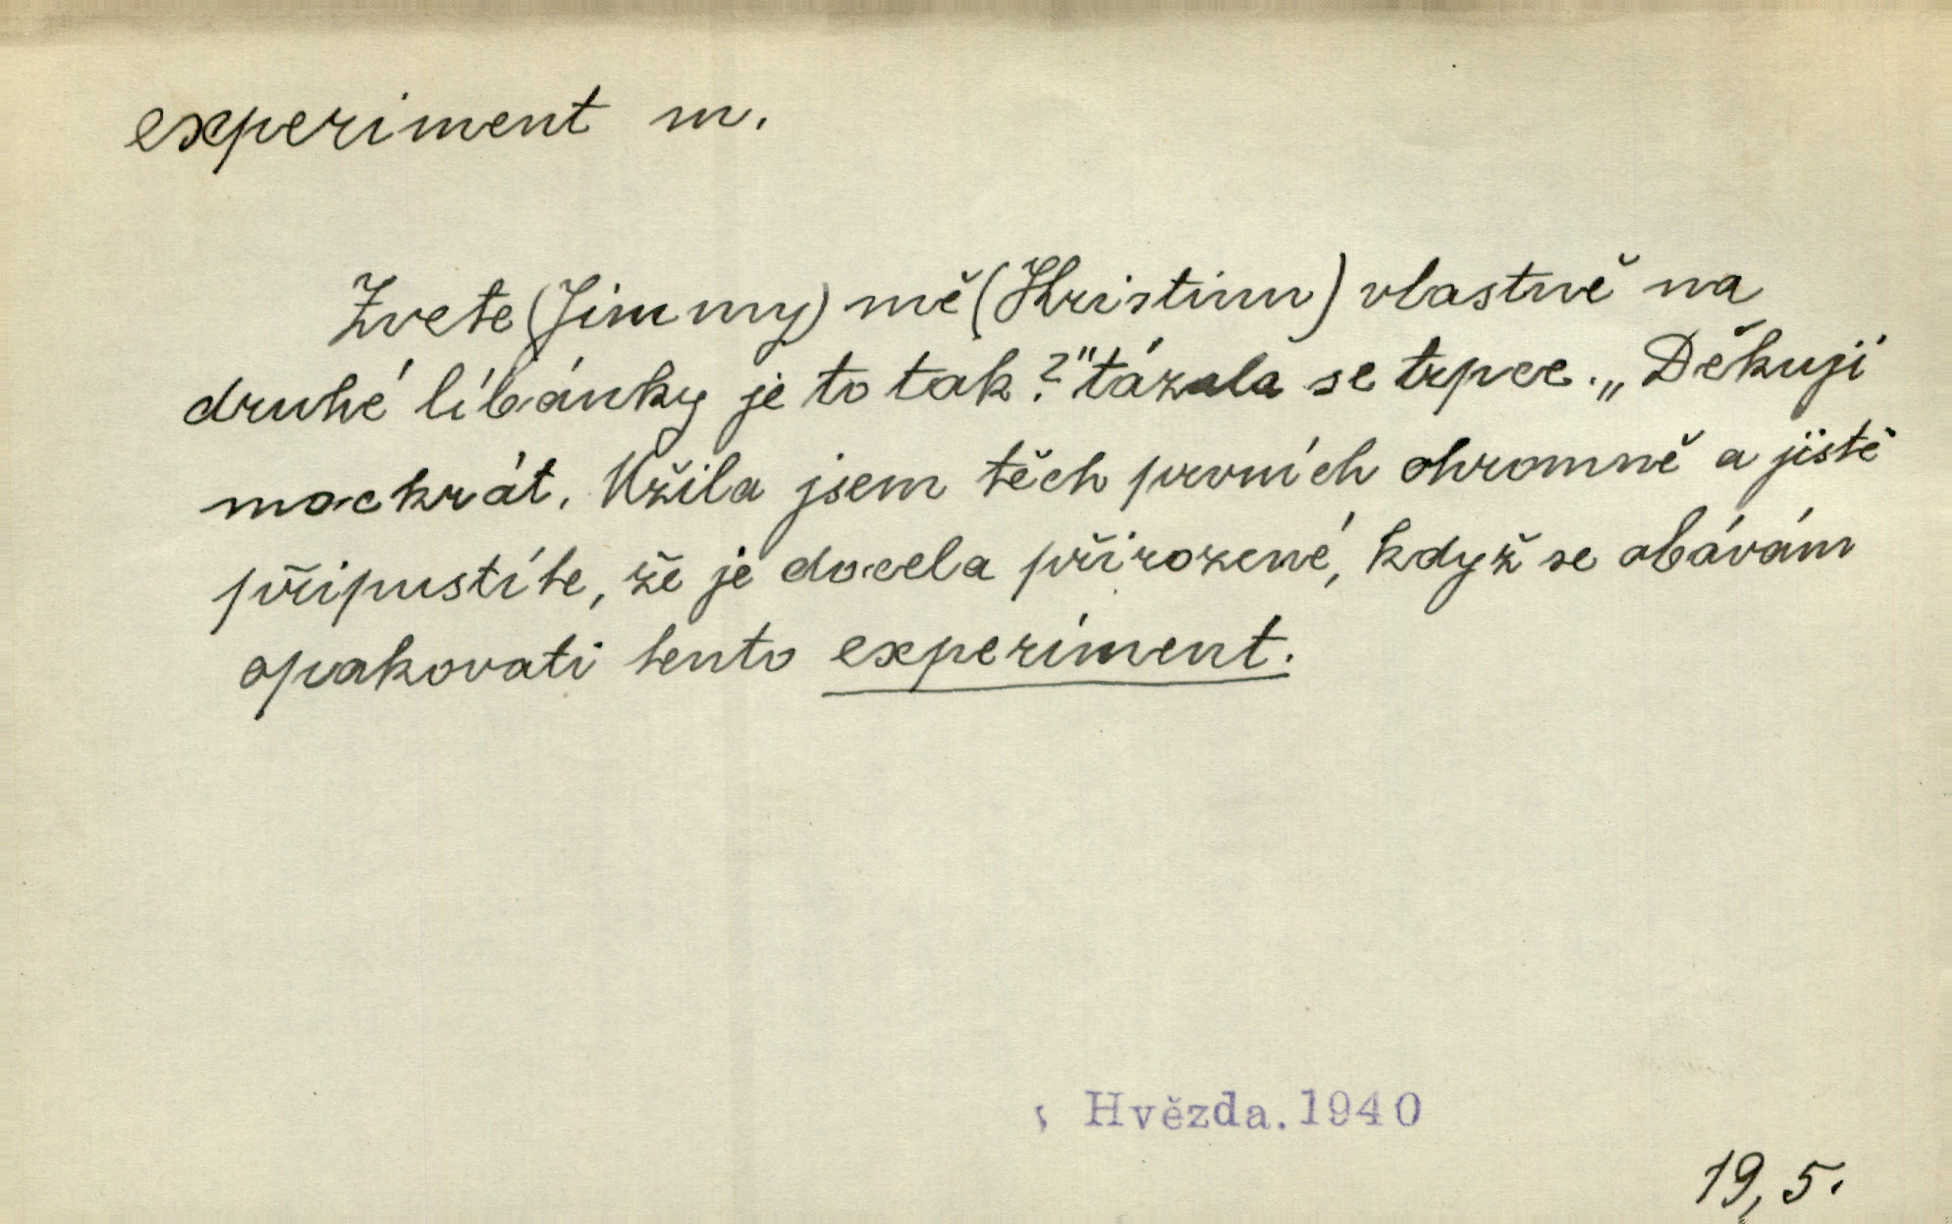 experiment m.
Zvete (Jimmy) mě (Kristinu) vlastně na
druhé líbánky je to tak?" tázala se trpce. „Děkuji
mockrát. Užila jsem těch prvních ohromně a jistě
připustíte, že je docela přirozené, když se obávám
opakovati tento experiment.
Hvězda. 1940
19, 5.